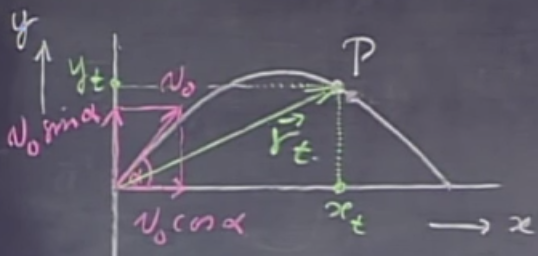 y
P
y_t
v_0
v_0 sin α
r⃗_t
α
v_0 cos α
x_t
x